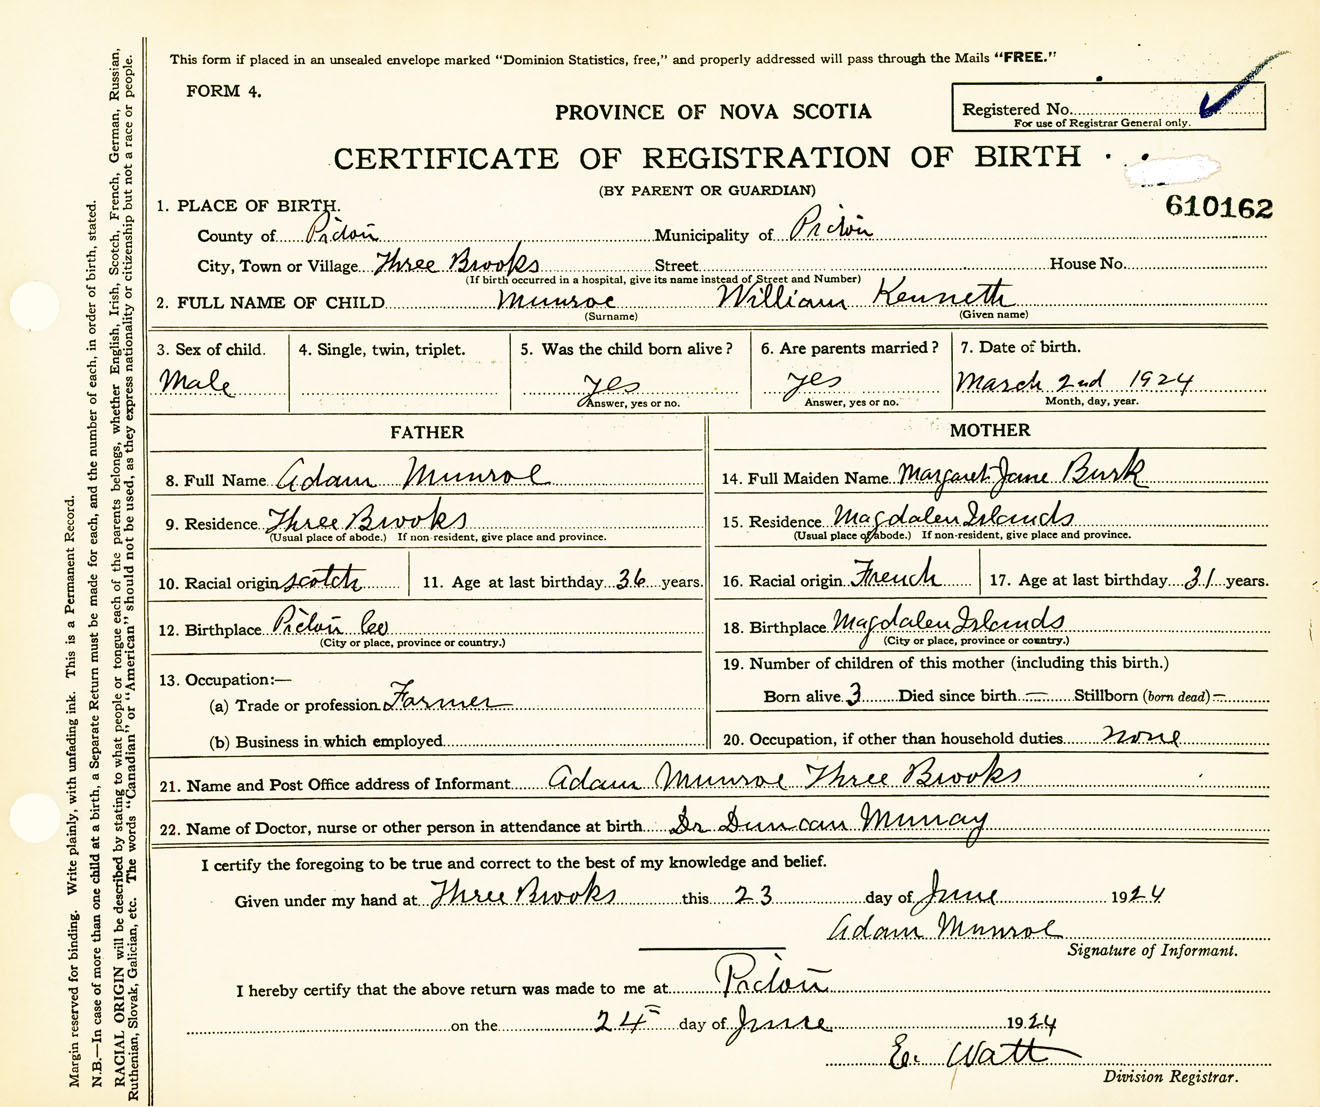 This form if placed in an unsealed envelope marked "Dominion Statistics, free," and properly addressed will pass through the Mails "FREE."
FORM 4.
Registered No.
For use of Registrar General only.
PROVINCE OF NOVA SCOTIA
CERTIFICATE OF REGISTRATION OF BIRTH
(BY PARENT OR GUARDIAN)
610162
1. PLACE OF BIRTH.
County of Pictou Municipality of Pictou
City, Town or Village Three Brooks Street House No.
(If birth occurred in a hospital, give its name instead of Street and Number)
2. FULL NAME OF CHILD Munroe William Kenneth
(Surname) (Given name)
3. Sex of child. 4. Single, twin, triplet. 5. Was the child born alive? 6. Are parents married? 7. Date of birth.
Male yes yes March 2nd 1924
Answer, yes or no. Answer, yes or no. Month, day, year.
FATHER MOTHER
8. Full Name Adam Munroe 14. Full Maiden Name Margaret Jane Burk
9. Residence Three Brooks 15. Residence Magdalen Islands
(Usual place of abode.) If non-resident, give place and province. (Usual place of abode.) If non-resident, give place and province.
10. Racial origin scotch 11. Age at last birthday 36 years. 16. Racial origin French 17. Age at last birthday 31 years.
12. Birthplace Pictou Co 18. Birthplace Magdalen Islands
(City or place, province or country.) (City or place, province or country.)
13. Occupation:— 19. Number of children of this mother (including this birth.)
(a) Trade or profession Farmer Born alive 3 Died since birth — Stillborn (born dead) —
(b) Business in which employed 20. Occupation, if other than household duties none
21. Name and Post Office address of Informant Adam Munroe Three Brooks
22. Name of Doctor, nurse or other person in attendance at birth Dr Duncan Murray
I certify the foregoing to be true and correct to the best of my knowledge and belief.
Given under my hand at Three Brooks this 23 day of June 1924
Adam Munroe
Signature of Informant.
I hereby certify that the above return was made to me at Pictou
on the 24 day of June 1924
E. Watt
Division Registrar.
Margin reserved for binding. Write plainly, with unfading ink. This is a Permanent Record.
N.B.—In case of more than one child at a birth, a Separate Return must be made for each, and the number of each, in order of birth, stated.
RACIAL ORIGIN will be described by stating to what people or tongue each of the parents belongs, whether English, Irish, Scotch, French, German, Russian,
Ruthenian, Slovak, Galician, etc. The words "Canadian" or "American" should not be used, as they express nationality or citizenship but not a race or people.